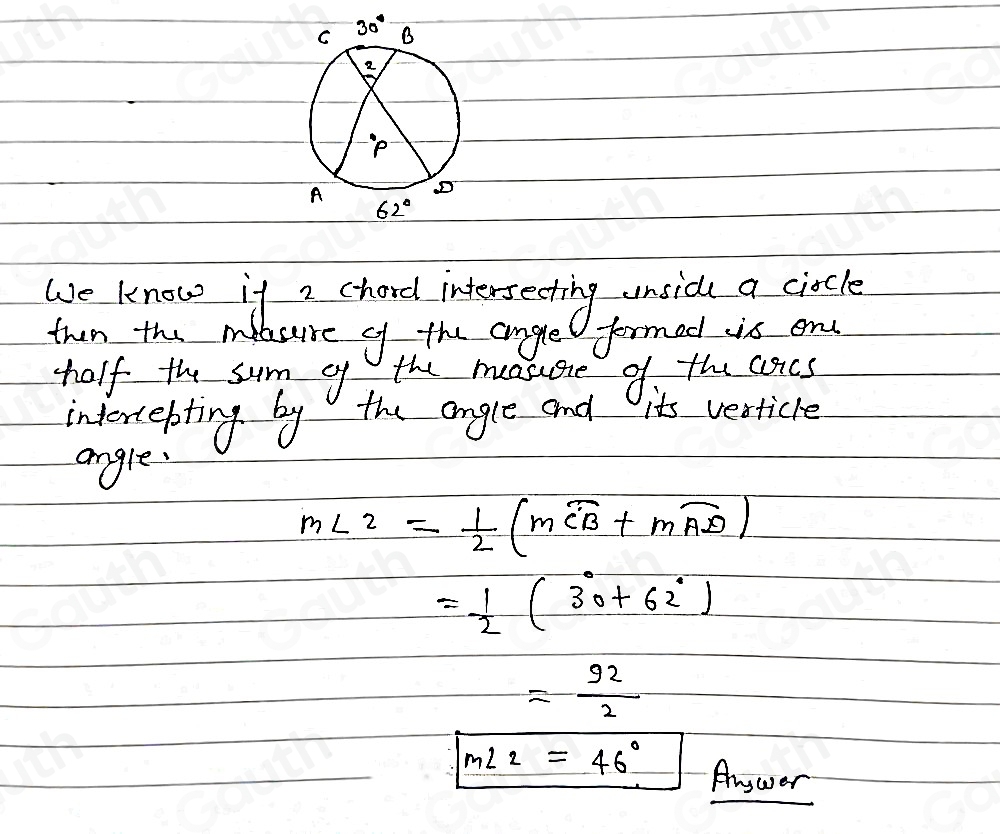 C 30° B
2
P
A D
62°
We know if 2 chord intersecting inside a circle
then the measure of the angle formed is one
half the sum of the measure of the arcs
intercepting by the angle and its verticle
angle.
m∠2 = 1/2 (m CB + m AD)
= 1/2 (30° + 62°)
= 92/2
m∠2 = 46° Answer